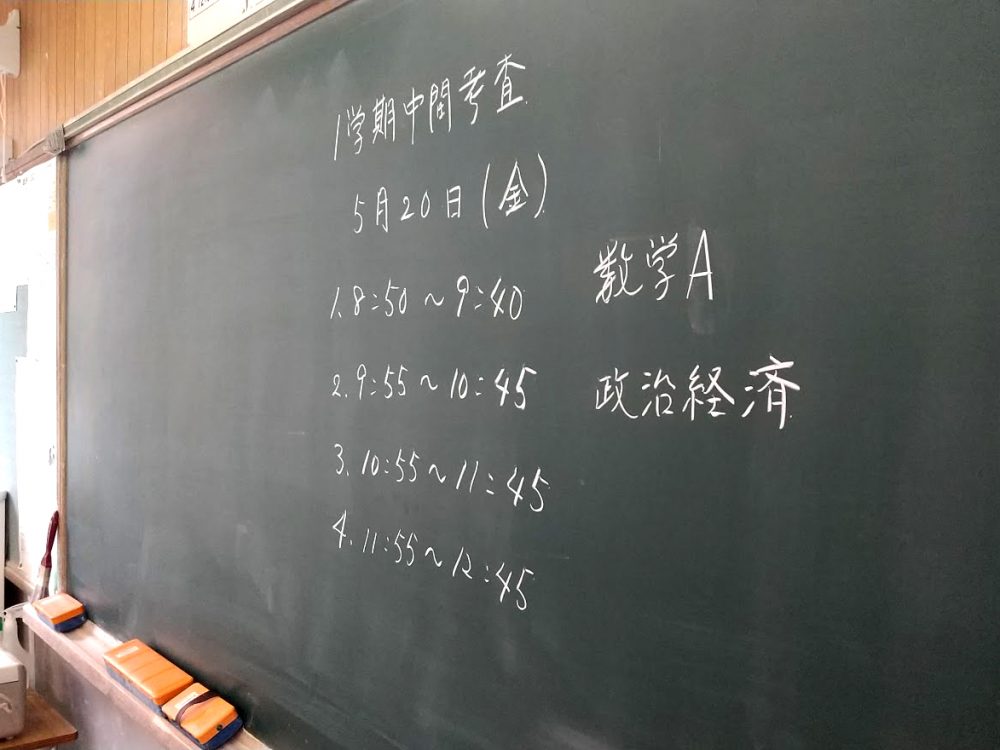 1学期中間考査
5月20日(金)
1. 8:50～9:40 数学A
2. 9:55～10:45 政治経済
3. 10:55～11:45
4. 11:55～12:45